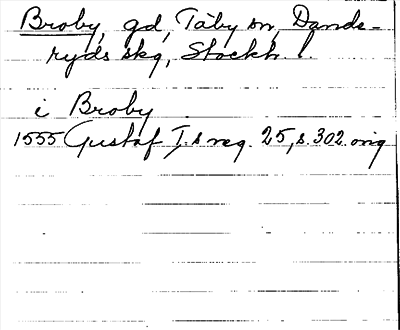 Broby, gd, Täby sn, Dande-
ryds skg, Stockh. l.
i Broby
1555 Gustaf I:s reg. 25, s. 302. orig